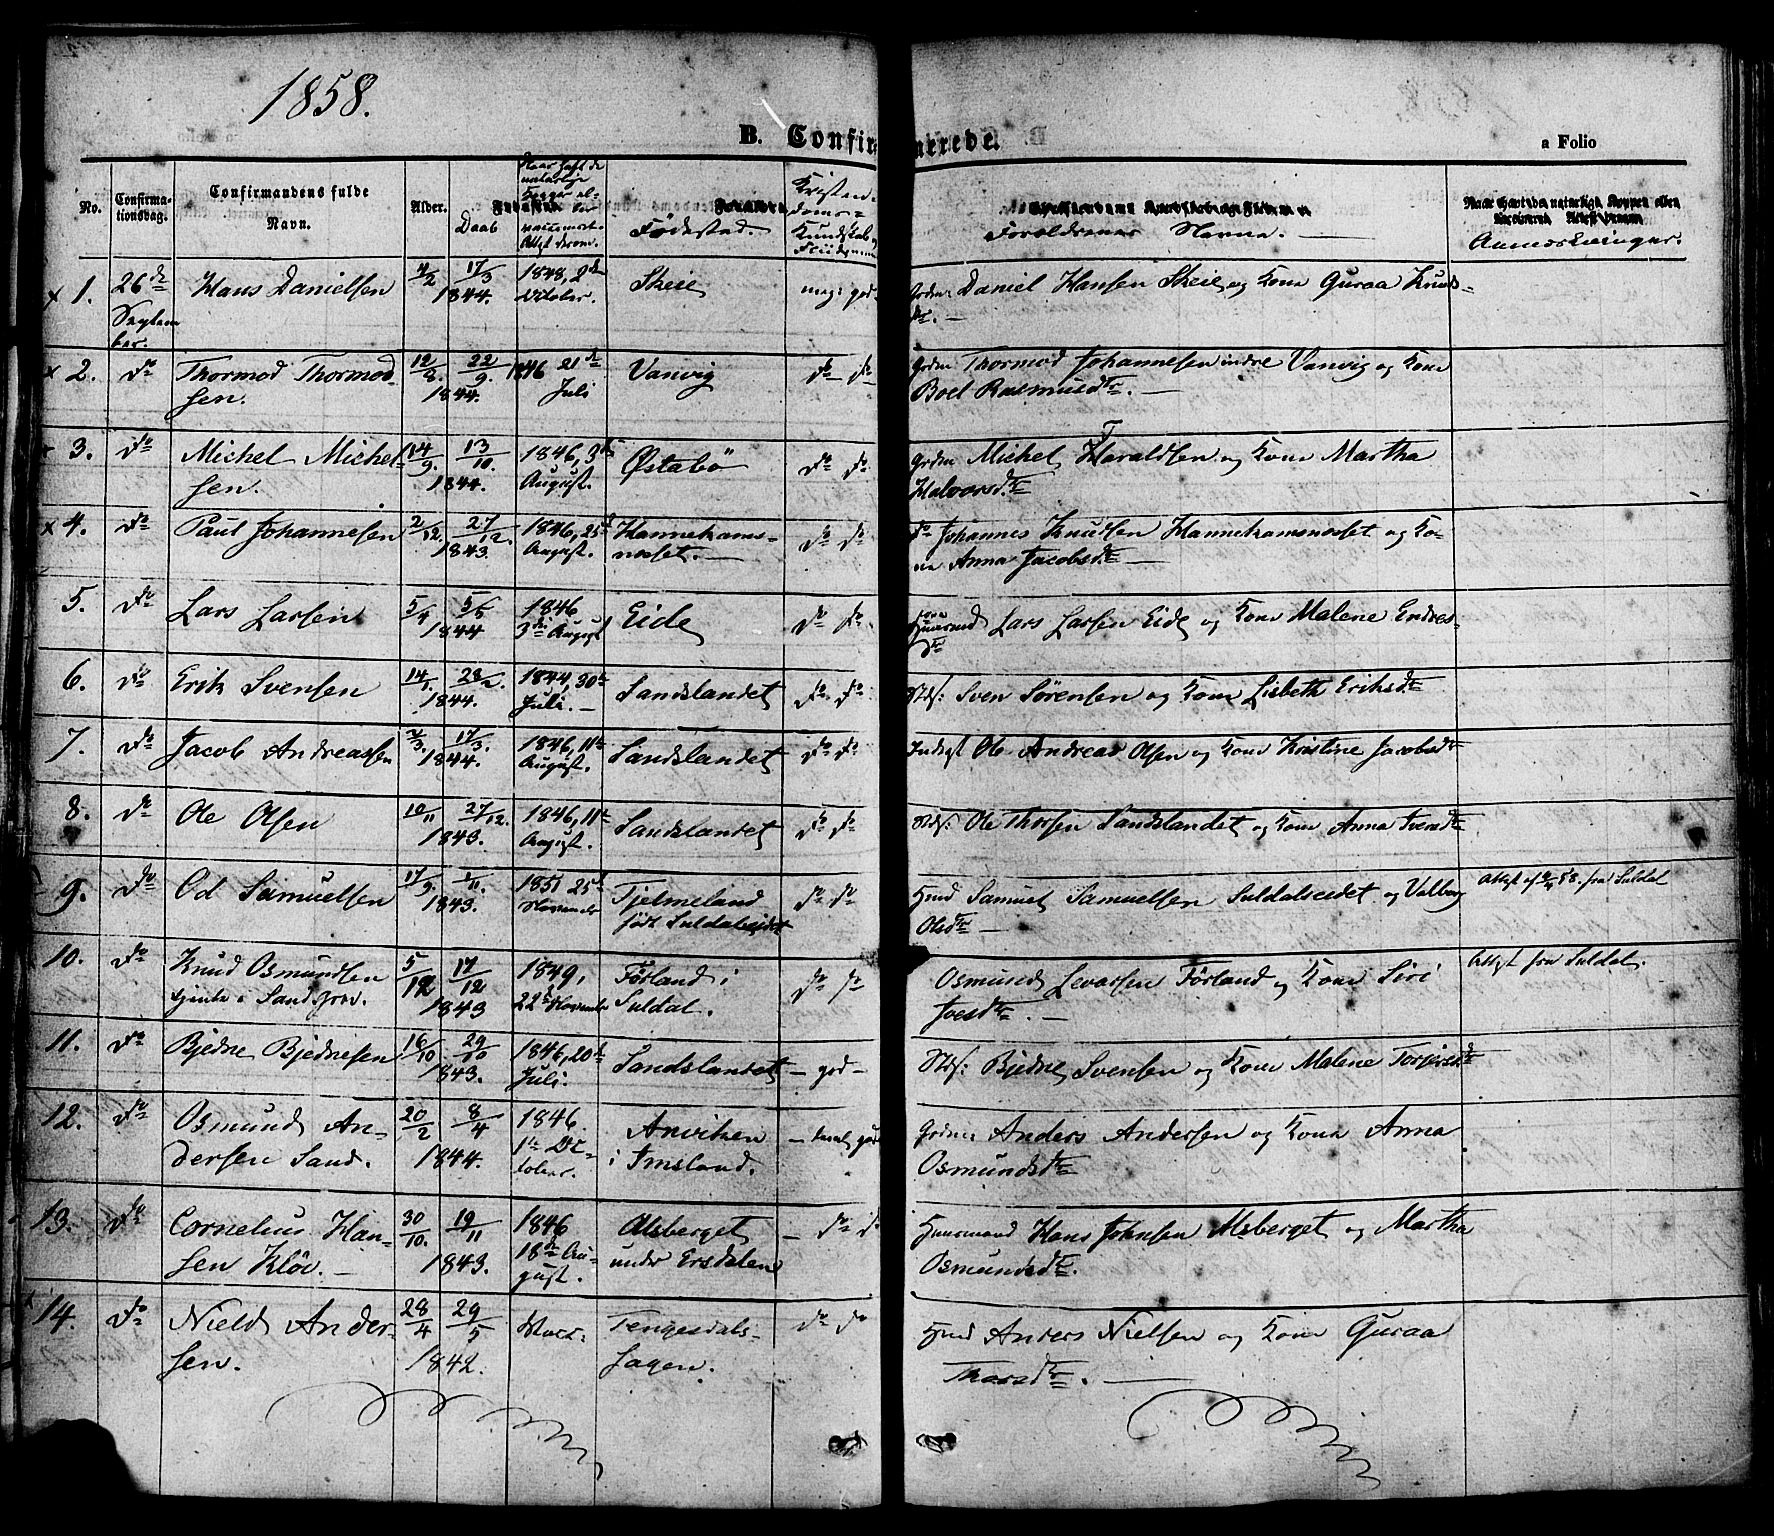 1858.
B. Confir
arrede.
a Folio
No. Confirma-tionsdag. Confirmandens fulde Navn. Alder. Daab Fødestad. Kristen-doms-Kundskab Forældrenes Navne. Anmærkninger.
1. 26de Septem-ber. Hans Daniel­sen 4/2 17/3 1844. 1848, 2d Oktober. Skeie meg. god Gdmd. Daniel Hansen Skeie og Kone Guraa Knuds-
dtr. —
2. do Thormod Thormod-sen. 12/8. 22/9. 1844. 1846 21de Juli Vanvig do do Gdmd. Thormod Johannesen indre Vanvig og Kone
Boel Rasmusdtr. —
3. do Michel Michel-sen. 14/9. 13/10. 1844. 1846, 3d August. Østabö do do Gdmd. Michel Haraldsen og Kone Martha
Halvorsdtr
4. do Paul Johannesen 2/12. 27/12. 1843. 1846, 25d August. Hannekams-nesset. — do do do Johannes Knudsen Hannekamsnesset og Ko-
ne Anna Jacobsdtr —
5. do Lars Larsen 5/4 5/5 1844 1846 3die August Eide do do Lars Larsen Eide og Kone Malene Endres-
dtr
6. do Erik Svensen 14/1. 28/2. 1844. 1844, 30te Juli. — Sandslandet do do Sven Sörensen og Kone Lisbeth Eriksdtr
7. do Jacob Andreassen 2/3. 17/3. 1844. 1846, 11te August. Sandslandet do do Inderst Ole Andreas Olsen og Kone Kristine Jacobsdtr
8. do Ole Olsen 10/11 27/12. 1843. 1846, 11te August. Sandslandet do do Ole Thorsen Sandslandet og Kone Anna Iversdtr
9. do Od Samuelsen 17/9. 1/11. 1843. 1851 25d November Fjelmeland født Suldalseidet do do Hmd Samuel Samuelsen Suldalseidet og Valborg Attest af fra Suldal
Olsdtr —
10. do Knud Osmundsen tjente i Sand 5/12 17/12 1843 1849, 22de November Førland i Suldal. do do Osmund Levarsen Førland og Kone Siri Attest fra Suldal.
Ivesdtr. —
11. do Bjedne Bjednesen 16/10 29/10 1843. 1846, 20de Juli. Sandslandet — god — Bjedne Svensen og Kone Malene Torgersdtr
12. do Osmund An-dersen Sand. 20/2 8/4 1844. 1846. 1te Oc-tober. Anviken i Imsland. Gdmd. Anders Andersen og Kone Anna
Osmundsdtr
13. do Cornelius Han-sen Klöv. — 30/10. 19/11 1843. 1846 18de Au-gust. Alsberget under Ersdalen — do do Huusmand Hans Johnsen Alsberget og Martha
Osmundsdtr.
14. do Nield Ander-sen. 28/4 29/5 1842. Tengesdals-hagen. do do Hmd Anders Nielsen og Kone Guraa
Thorsdtr. —